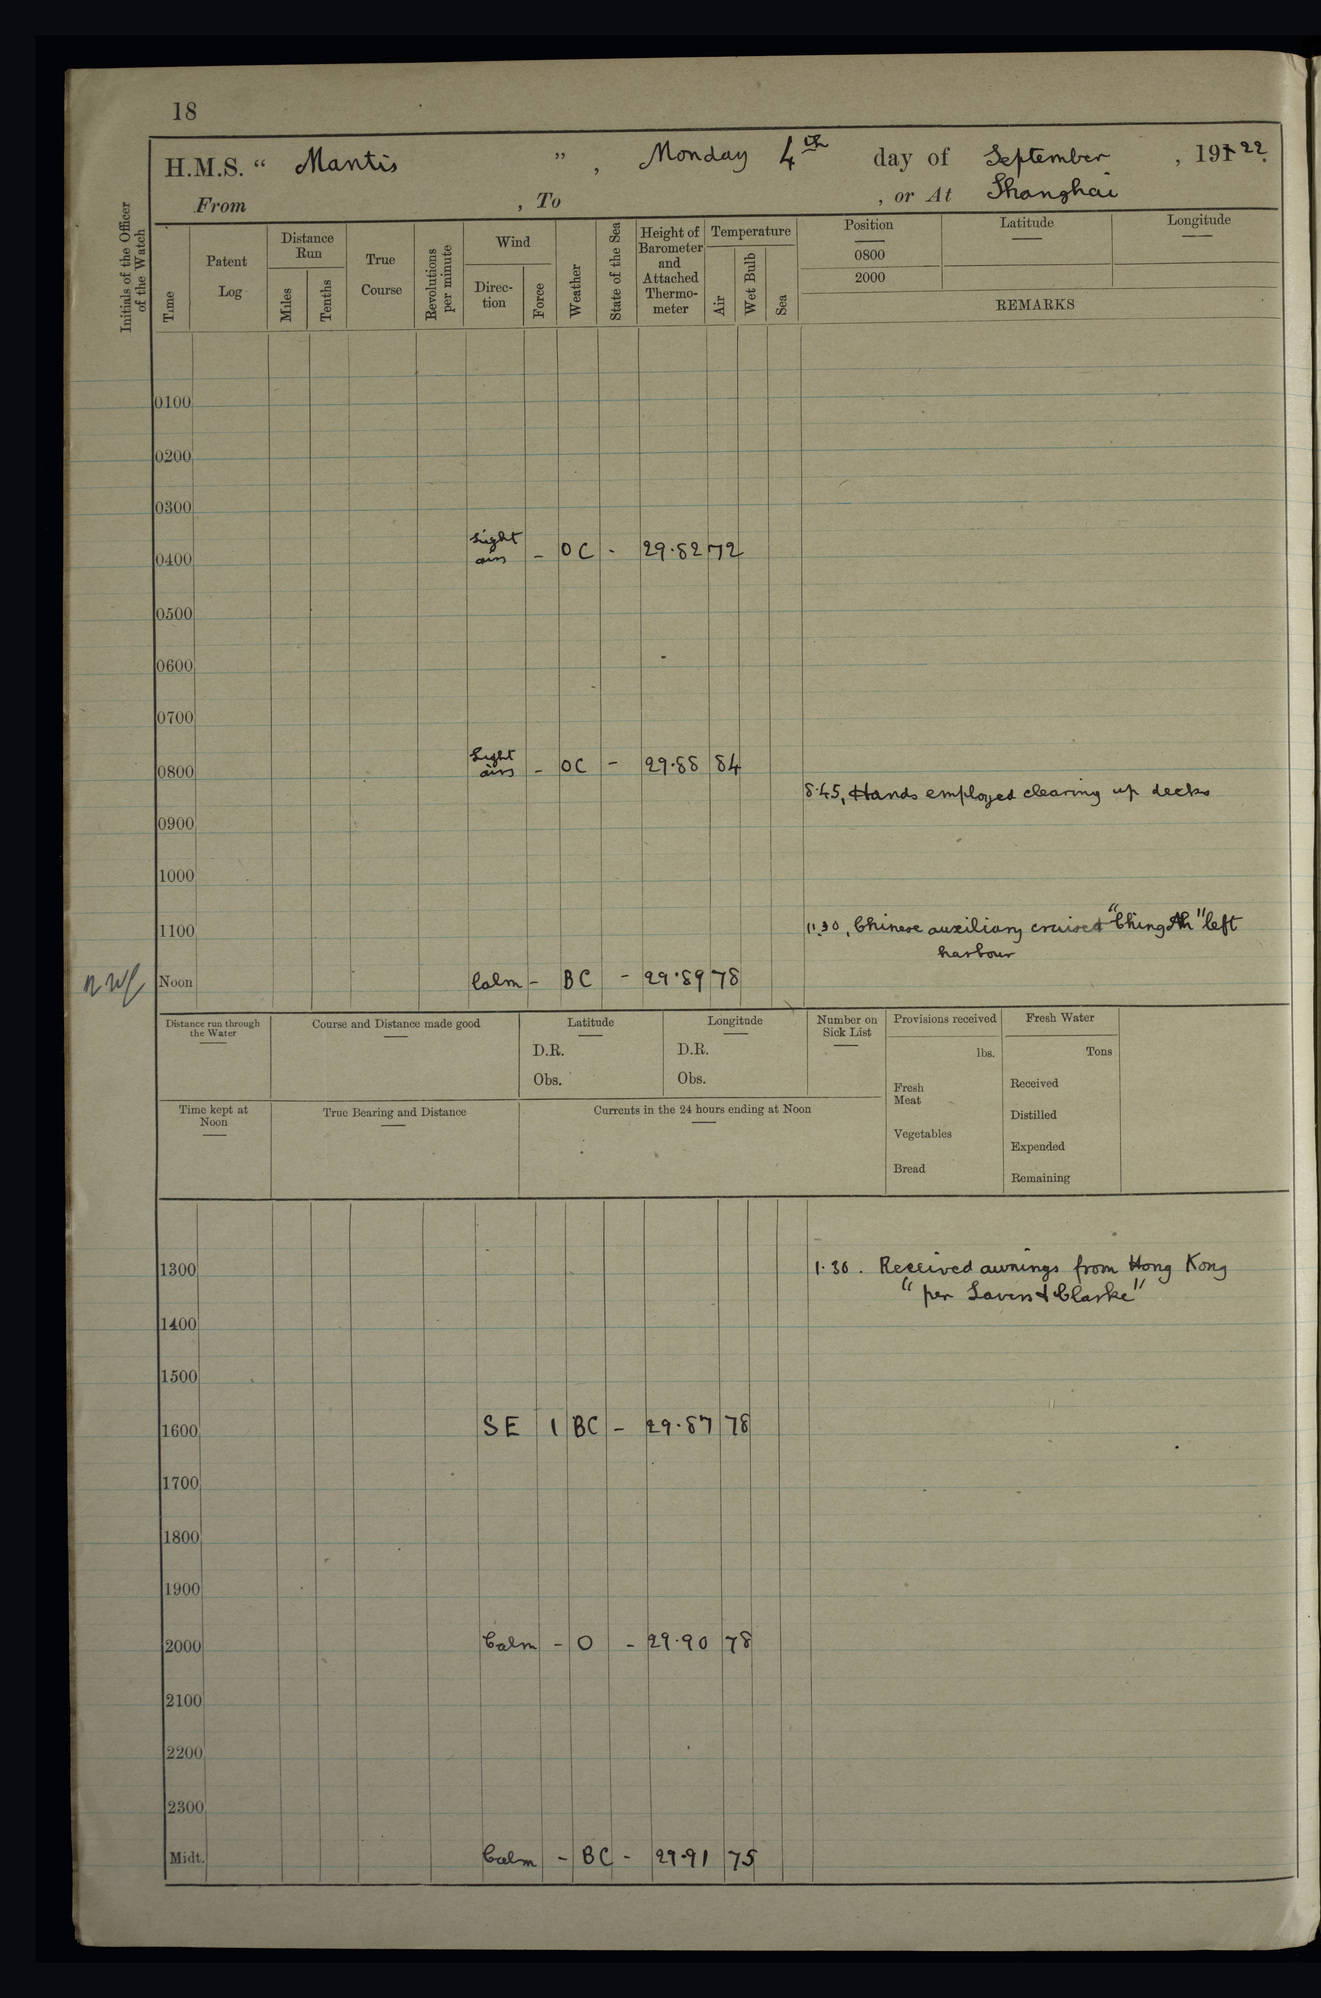 18
H.M.S. “ Mantis ” , Monday 4th day of September , 19122.
From , To , or At Shanghai
Initials of the Officer of the Watch
Time
Patent Log
Distance Run
Miles
Tenths
True Course
Revolutions per minute
Wind
Direc-tion
Force
Weather
State of the Sea
Height of Barometer and Attached Thermo-meter
Temperature
Air
Wet Bulb
Sea
Position
Latitude
Longitude
0800
2000
REMARKS
0100
0200
0300
0400 Light airs - OC - 29.82 72
0500
0600
0700
0800 Light airs - OC - 29.88 84
8.45, Hands employed clearing up decks
0900
1000
1100 11.30, Chinese auxiliary cruiser " Ching " left
harbour
Noon Calm - BC - 29.89 78
Distance run through the Water
Course and Distance made good
Latitude
D.R.
Obs.
Longitude
D.R.
Obs.
Number on Sick List
Provisions received
lbs.
Fresh Meat
Vegetables
Bread
Fresh Water
Tons
Received
Distilled
Expended
Remaining
Time kept at Noon
True Bearing and Distance
Currents in the 24 hours ending at Noon
1300 1.30. Received awnings from Hong Kong
"per Lavers & Clarke"
1400
1500
1600 SE 1 BC - 29.87 78
1700
1800
1900
2000 Calm - O - 29.90 78
2100
2200
2300
Midt. Calm - BC - 29.91 75